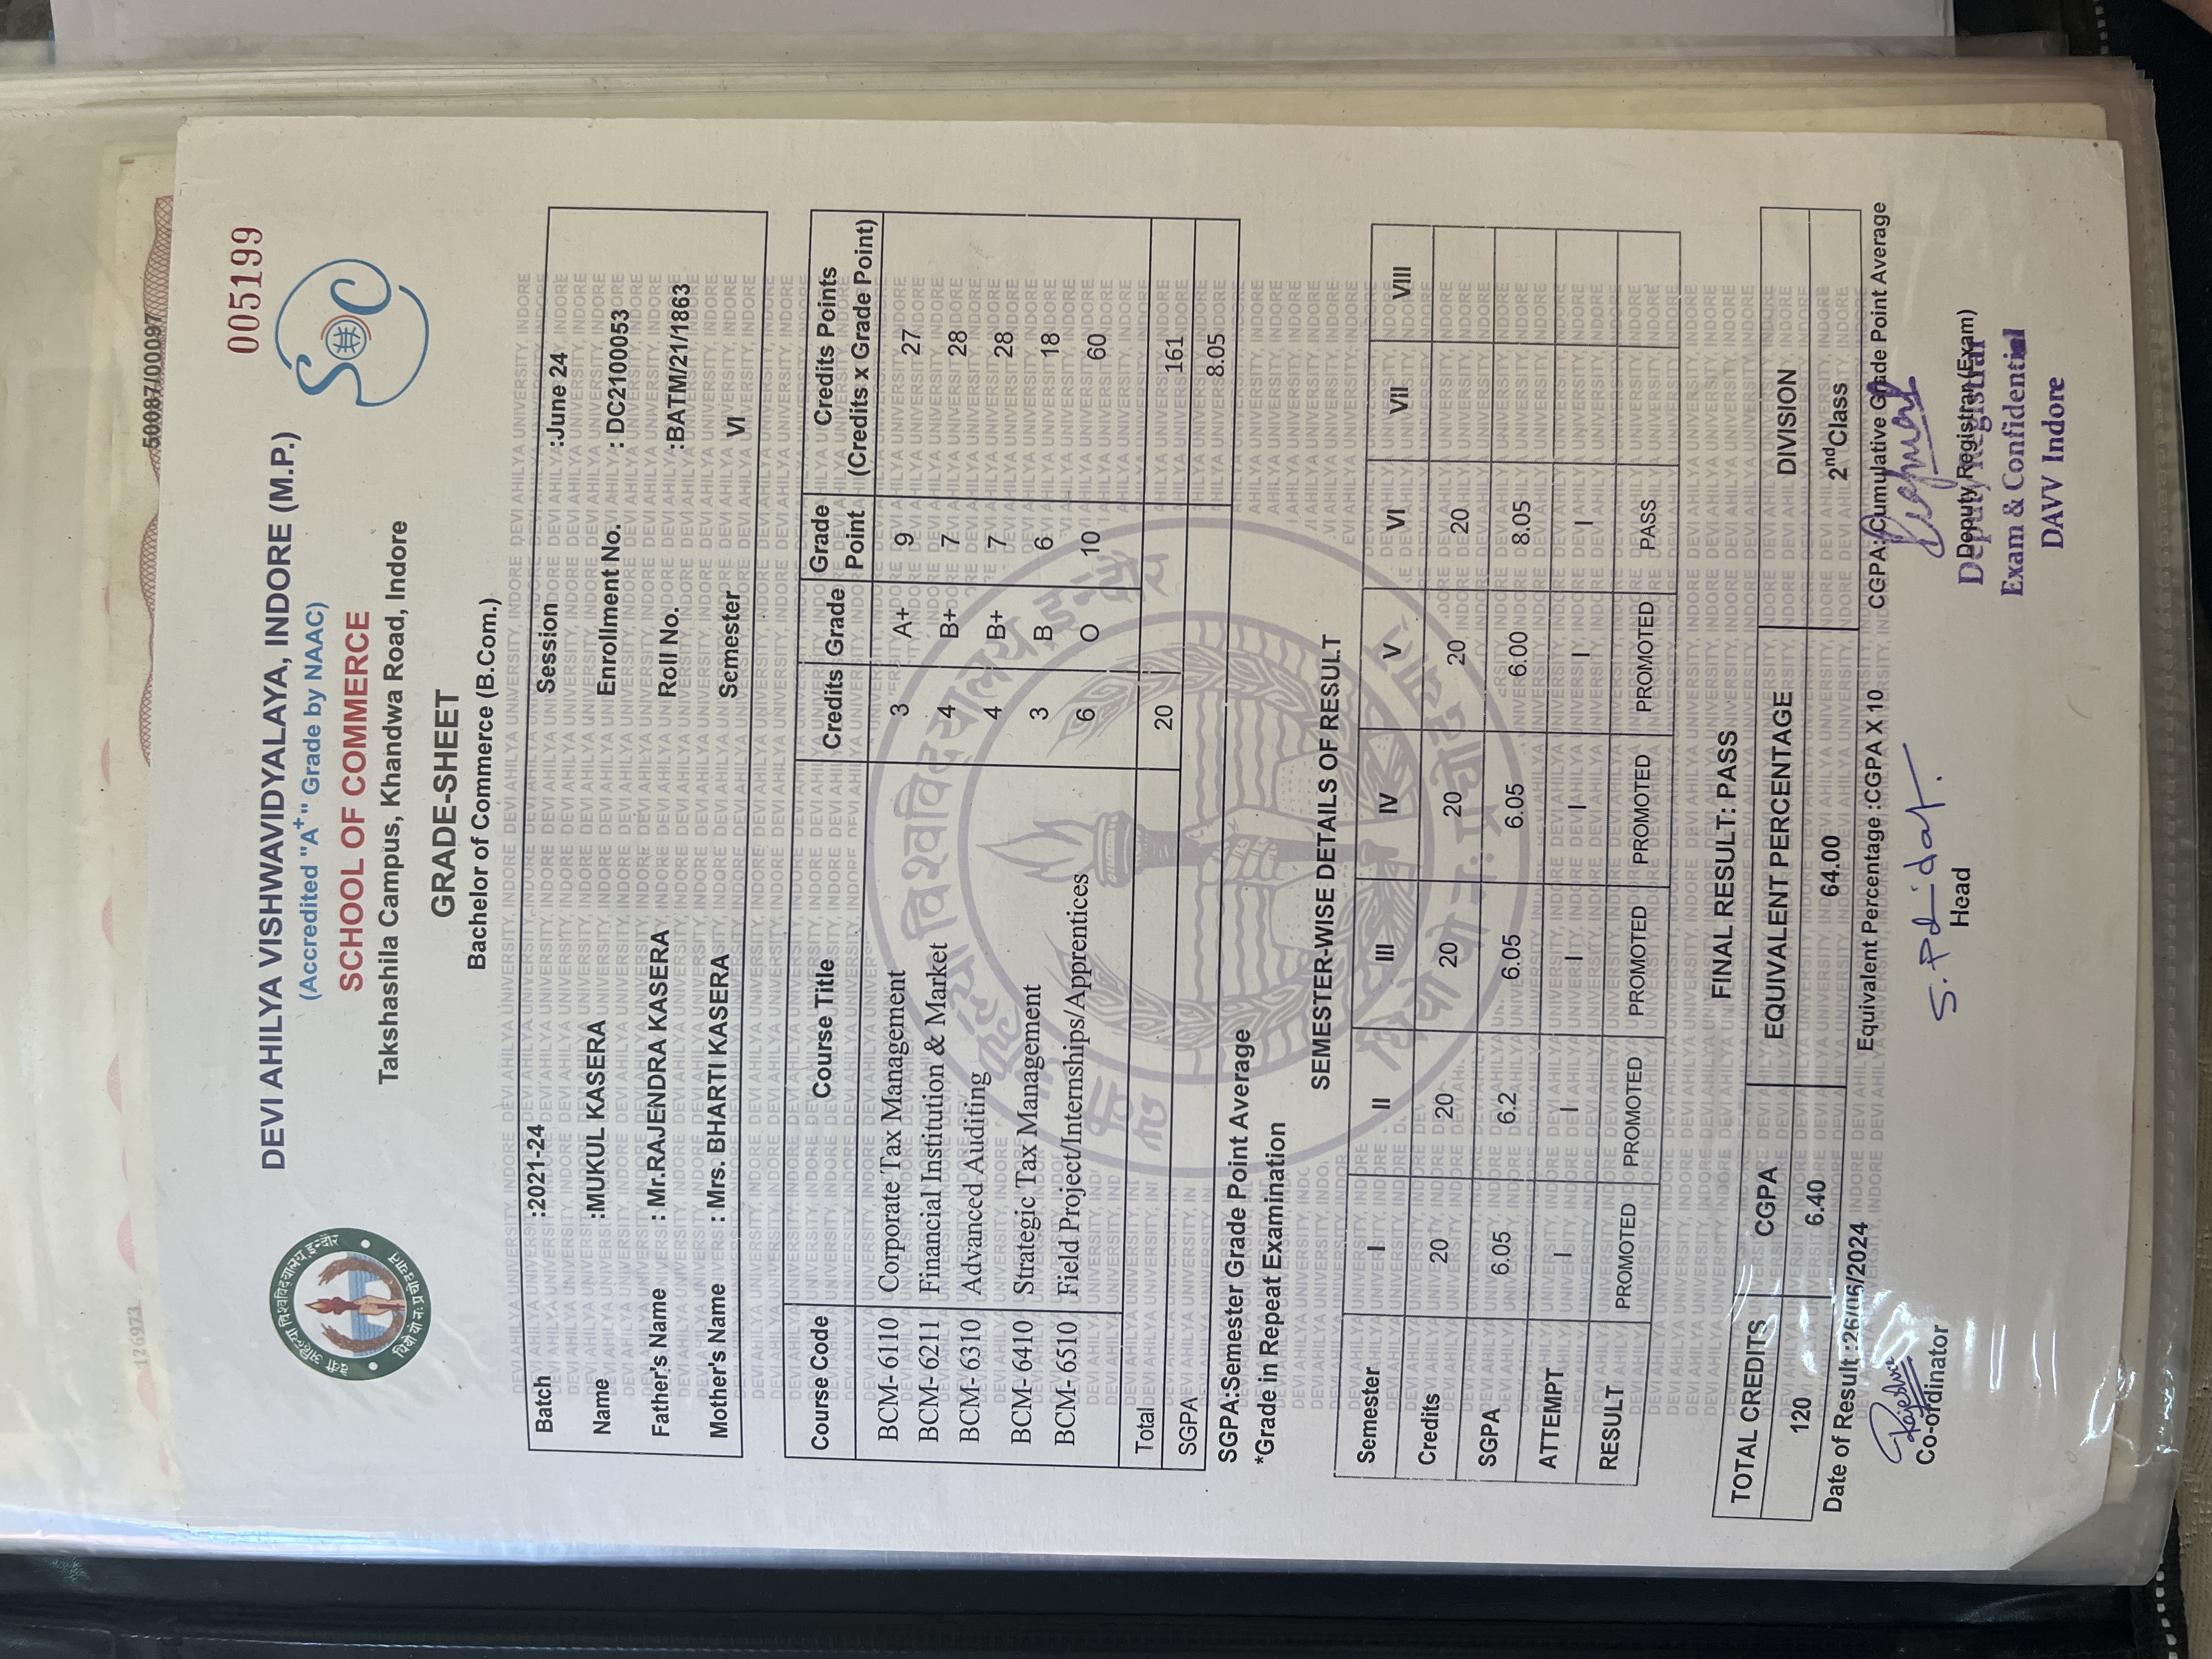 50087/00097
126973
005199
DEVI AHILYA VISHWAVIDYALAYA, INDORE (M.P.)
(Accredited "A+" Grade by NAAC)
SCHOOL OF COMMERCE
Takshashila Campus, Khandwa Road, Indore
SOC
GRADE-SHEET
Bachelor of Commerce (B.Com.)
Batch :2021-24 Session :June 24
Name :MUKUL KASERA Enrollment No. : DC2100053
Father's Name : Mr.RAJENDRA KASERA Roll No. :BATM/21/1863
Mother's Name : Mrs. BHARTI KASERA Semester VI
Course Code Course Title Credits Grade Grade Point Credits Points (Credits x Grade Point)
BCM- 6110 Corporate Tax Management 3 A+ 9 27
BCM- 6211 Financial Institution & Market 4 B+ 7 28
BCM- 6310 Advanced Auditing 4 B+ 7 28
BCM- 6410 Strategic Tax Management 3 B 6 18
BCM- 6510 Field Project/Internships/Apprentices 6 O 10 60
Total 20 161
SGPA 8.05
SGPA:Semester Grade Point Average
*Grade in Repeat Examination
SEMESTER-WISE DETAILS OF RESULT
Semester I II III IV V VI VII VIII
Credits 20 20 20 20 20 20
SGPA 6.05 6.2 6.05 6.05 6.00 8.05
ATTEMPT I I I I I I
RESULT PROMOTED PROMOTED PROMOTED PROMOTED PROMOTED PASS
FINAL RESULT: PASS
TOTAL CREDITS CGPA EQUIVALENT PERCENTAGE DIVISION
120 6.40 64.00 2nd Class
Date of Result :26/06/2024 Equivalent Percentage :CGPA X 10 CGPA:Cumulative Grade Point Average
Co-ordinator Head Deputy Registrar (Exam)
Deputy Registrar
Exam & Confidential
DAVV Indore